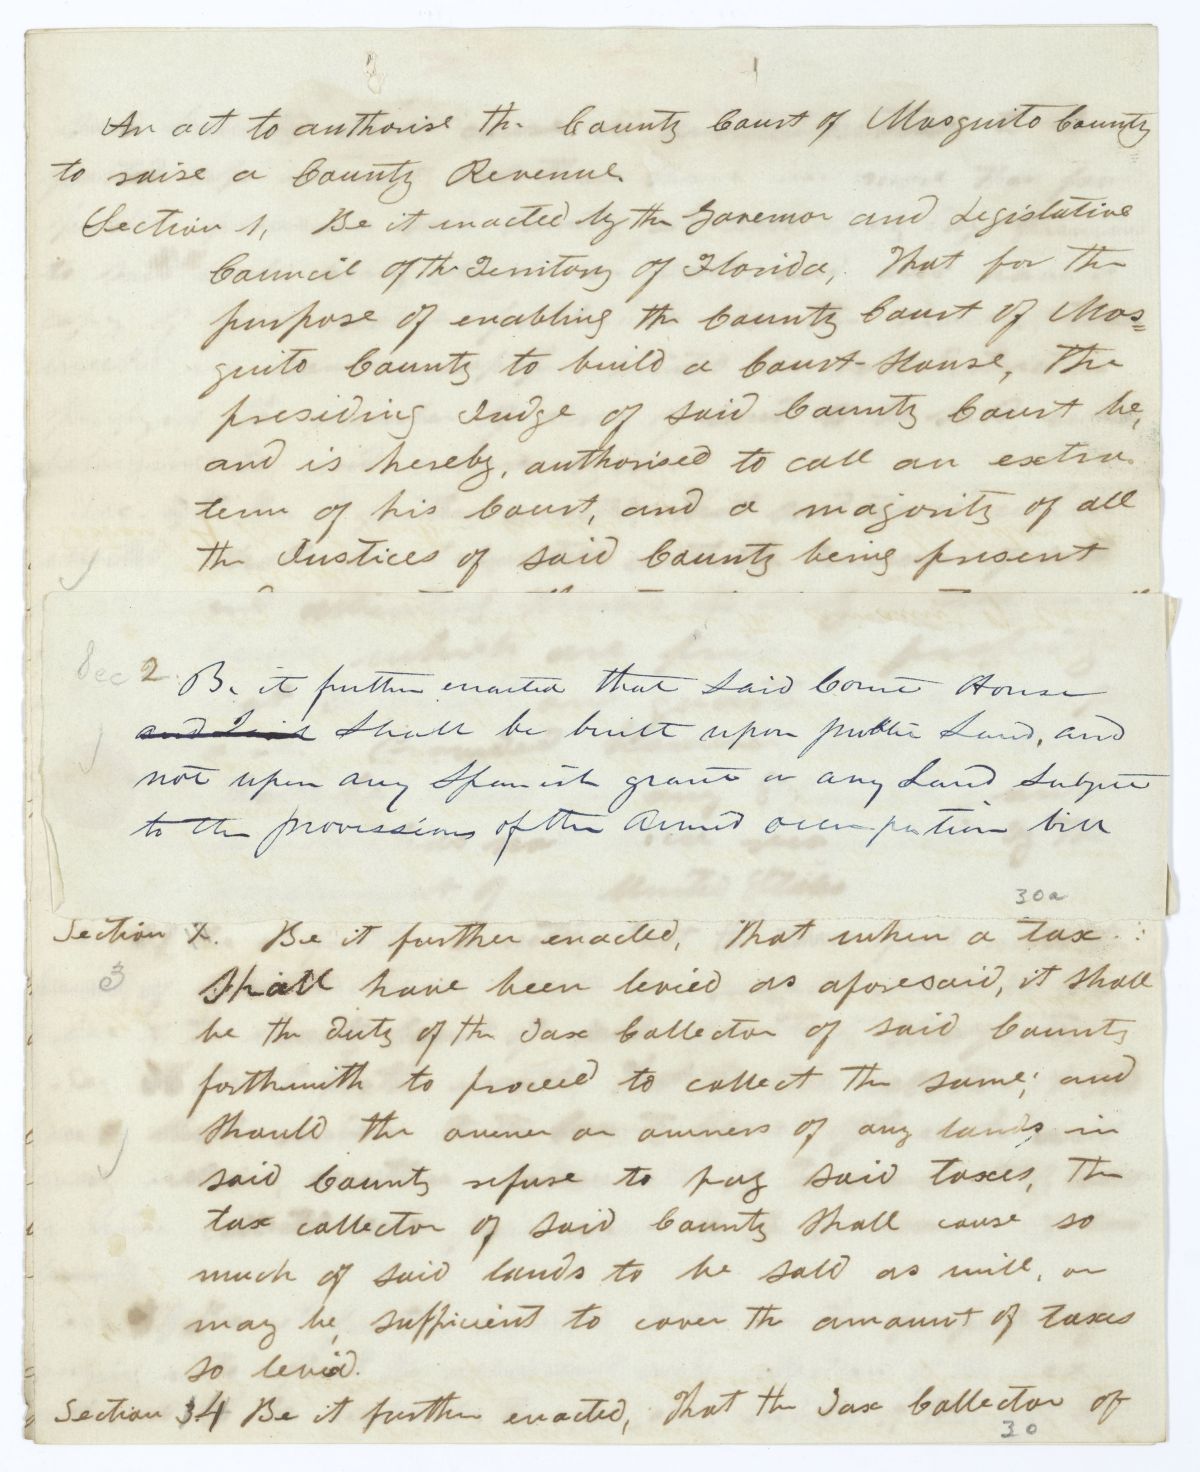 An act to authorise the County Court of Mosquito County
to raise a County Revenue.
Section 1, Be it enacted by the Governor and Legislative
Council of the Territory of Florida, That for the
purpose of enabling the County Court of Mos=
quito County to build a Court-House, The
presiding Judge of said County Court be,
and is hereby, authorised to call an extra
term of his Court, and a majority of all
the Justices of said County being present
Sec 2 Be it further enacted that said Court House
and Jail shall be built upon public Land, and
not upon any Spanish grant or any Land subject
to the provissions of the Armed occupation bill
30a
Section 2. Be it further enacted, That when a tax
3
Shall have been levied as aforesaid, it shall
be the duty of the Tax Collector of said County
forthwith to proceed to collect the same; and
should the owner or owners of any lands in
said County refuse to pay said taxes, the
tax collector of said County shall cause so
much of said lands to be sold as will, or
may be, sufficient to cover the amount of taxes
so levied.
Section 34 Be it further enacted, That the Tax Collector of
30